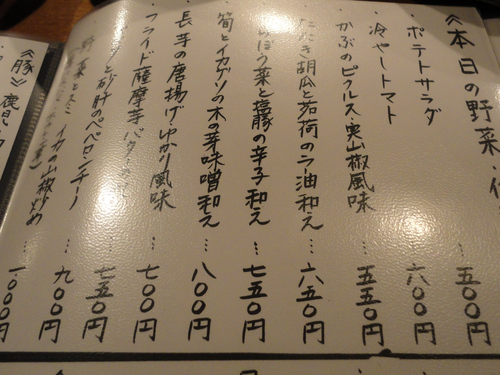 《本日の野菜・
・ポテトサラダ
五〇〇円
・冷やしトマト
六〇〇円
・かぶのピクルス・実山椒風味
五五〇円
胡瓜と茗荷のラー油和え…
六五〇円
菜と塩豚の辛子和え…
七五〇円
・筍とイカゲソの木の芽味噌和え…
八〇〇円
・長芋の唐揚げ・ゆかり風味
・フライド薩摩芋バター
…七〇〇円
と砂肝のペペロンチーノ
…七五〇円
野菜と
イカの山椒炒め
…九〇〇円
…一〇〇〇円
《豚》鹿児